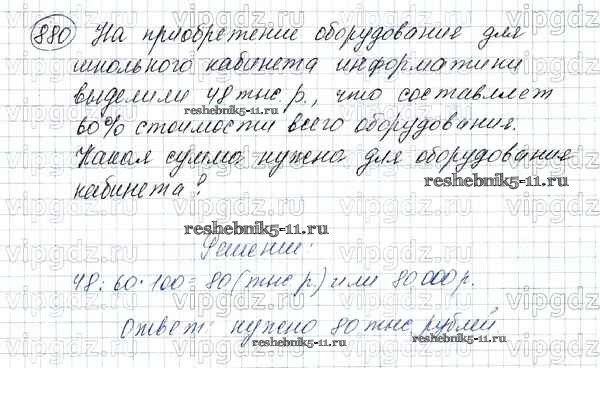 880 На приобретение оборудования для
школьного кабинета информатики
выделили 48 тыс р., что составляет
reshebnik5-11.ru
60% стоимости всего оборудования.
Какая сумма нужна для оборудования
reshebnik5-11.ru
кабинета?
reshebnik5-11.ru
Решение:
48:60·100=80(тыс р.) или 80 000 р.
Ответ: нужно 80 тыс рублей
reshebnik5-11.ru
vipgdz.ru